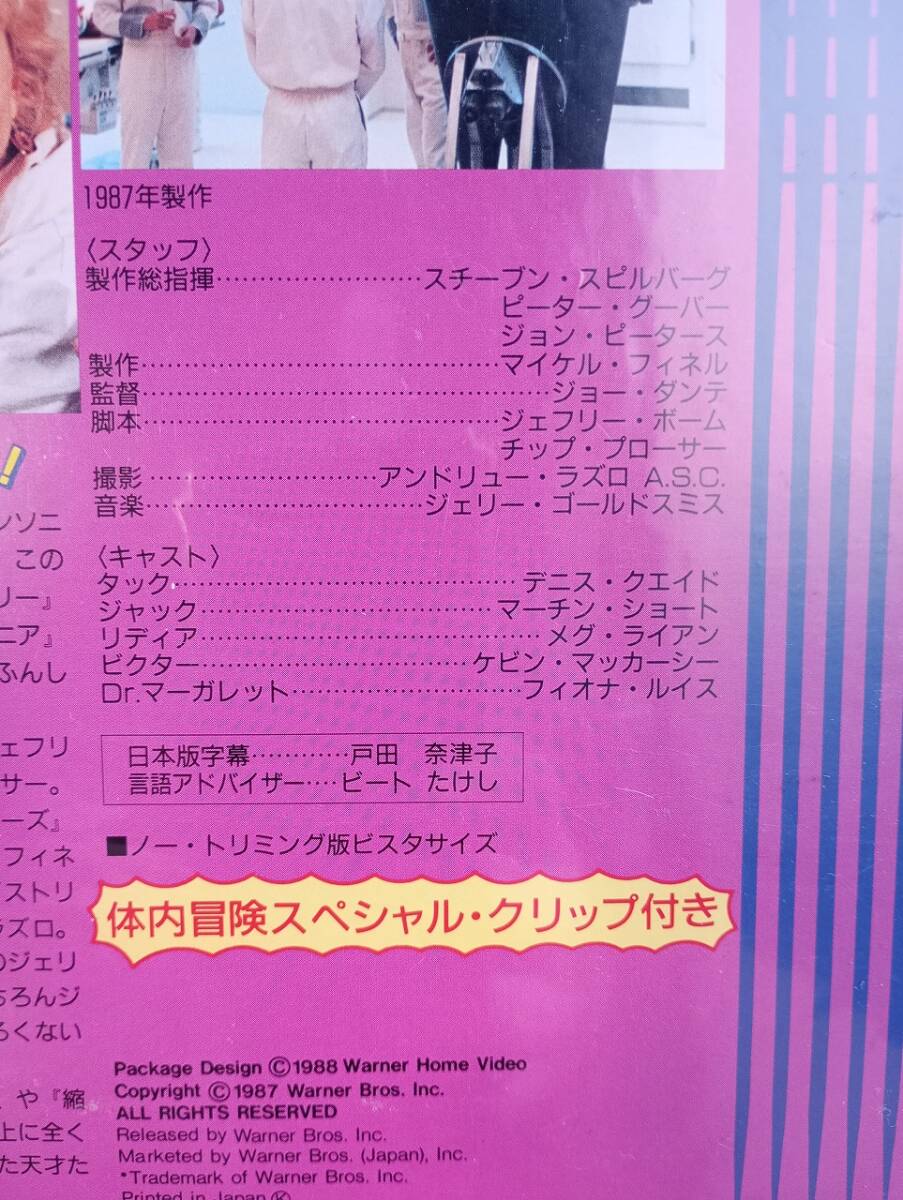 1987年製作
〈スタッフ〉
製作総指揮……………………スチーブン・スピルバーグ
ピーター・グーバー
ジョン・ピータース
製作……………………………………マイケル・フィネル
監督…………………………………………ジョー・ダンテ
脚本……………………………………ジェフリー・ボーム
チップ・プローサー
撮影………………………アンドリュー・ラズロ A.S.C.
音楽……………………………ジェリー・ゴールドスミス
〈キャスト〉
タック……………………………………デニス・クエイド
ジャック………………………………マーチン・ショート
リディア……………………………………メグ・ライアン
ビクター……………………………ケビン・マッカーシー
Dr.マーガレット………………………フィオナ・ルイス
日本版字幕…………戸田 奈津子
言語アドバイザー‥‥ビート たけし
■ノー・トリミング版ビスタサイズ
体内冒険スペシャル・クリップ付き
!
ンソニ
この
リー』
ニア』
ふんし
ェフリ
サー。
ーズ』
フィネ
ストリ
ラズロ。
のジェリ
ちろんジ
ろくない
や『縮
上に全く
た天才た
Package Design ©1988 Warner Home Video
Copyright ©1987 Warner Bros. Inc.
ALL RIGHTS RESERVED
Released by Warner Bros. Inc.
Marketed by Warner Bros. (Japan), Inc.
*Trademark of Warner Bros. Inc.
Printed in Japan Ⓚ